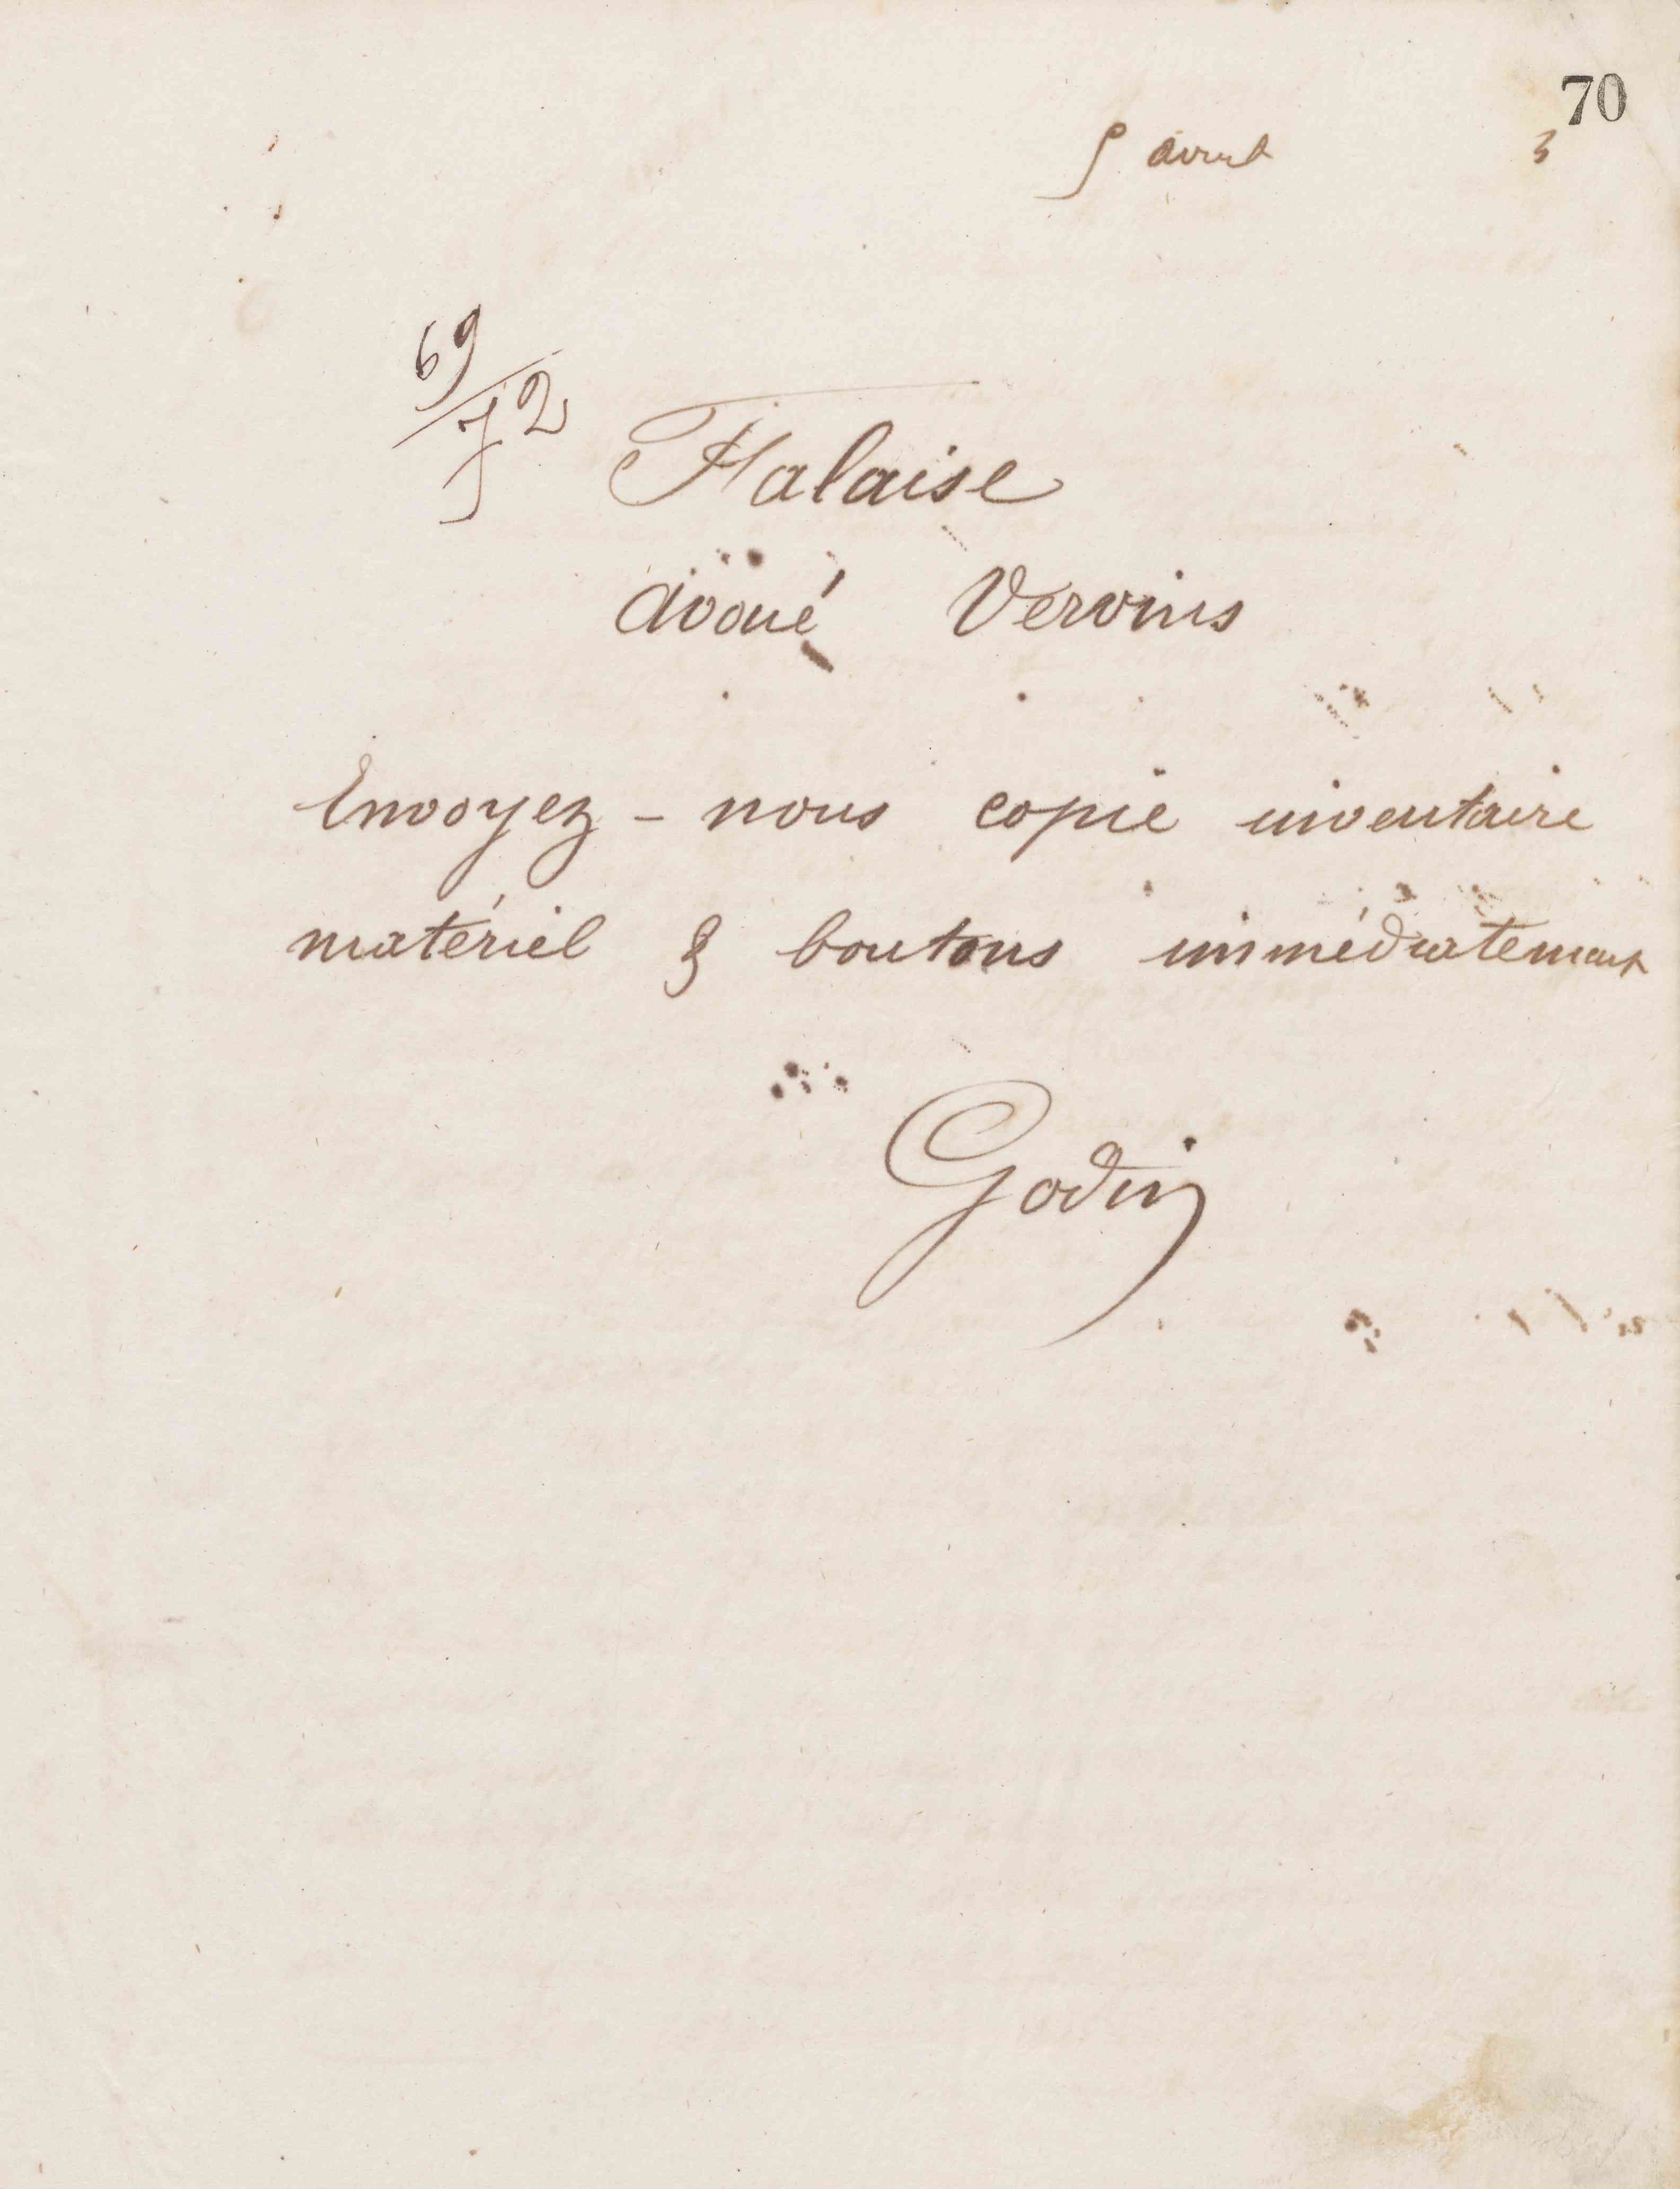 70
5 avril 3
69/72
Falaise
avoué Vervins
Envoyez-nous copie inventaire
matériel & boutons immédiatement
Godin